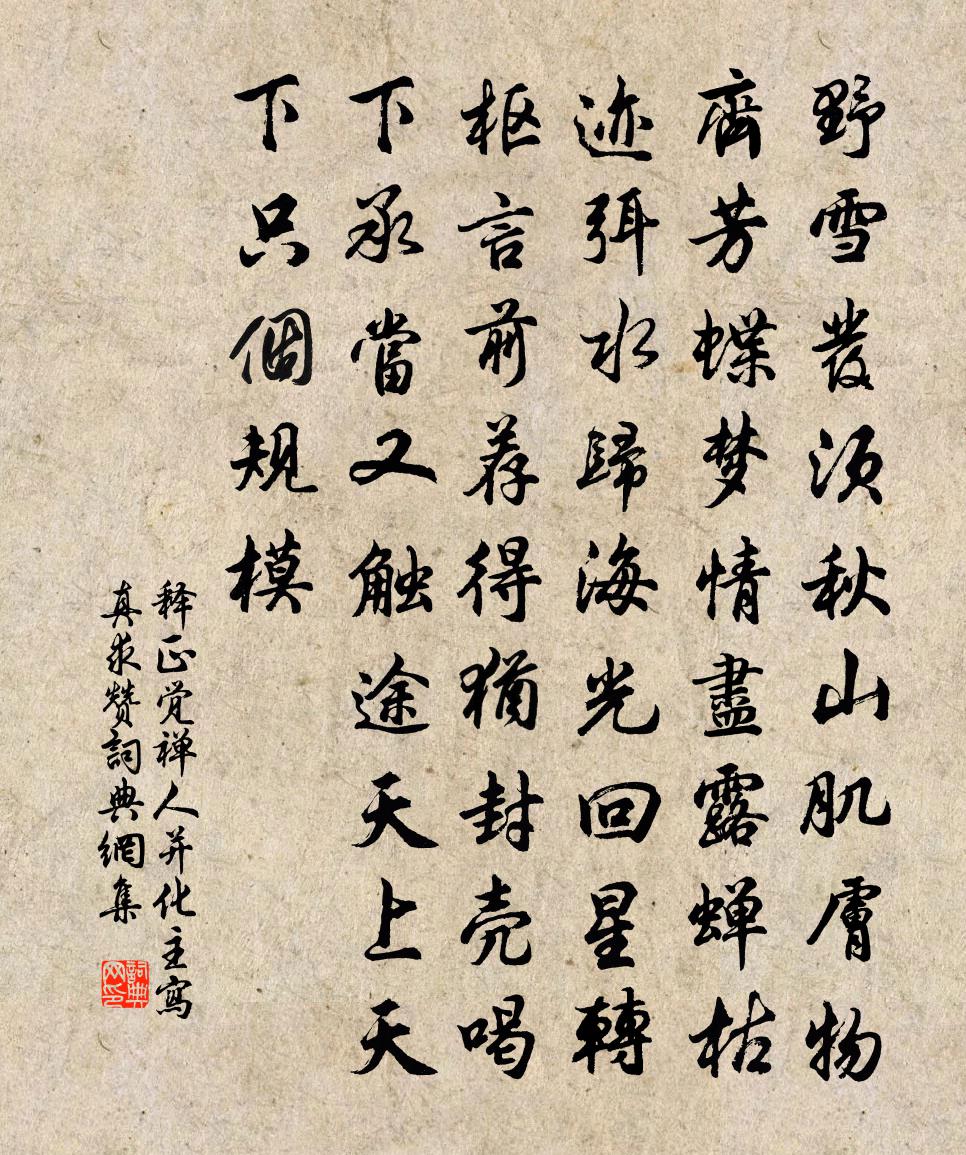 野雪發须秋山肌膚物
齊芳蝶梦情盡露蝉枯
迹弭水歸海光回星轉
枢言前荐得猶封壳喝
下承當又触途天上天
下只個规模
释正觉禅人并化主寫
真求赞詞典網集
詞典网印